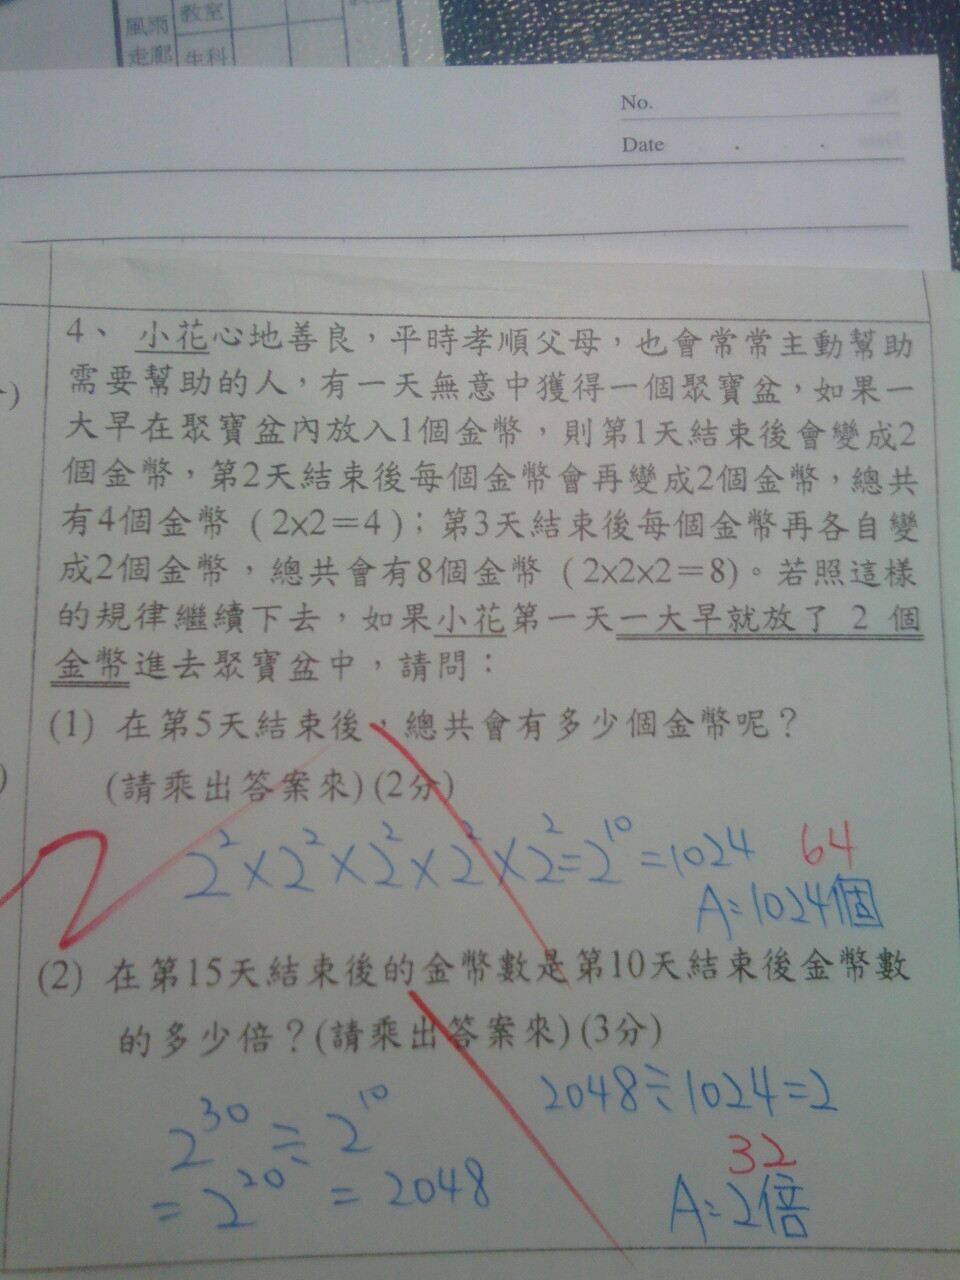 風雨 教室
走廊 生科
No.
Date
4、 小花心地善良，平時孝順父母，也會常常主動幫助
需要幫助的人，有一天無意中獲得一個聚寶盆，如果一
大早在聚寶盆內放入1個金幣，則第1天結束後會變成2
個金幣，第2天結束後每個金幣會再變成2個金幣，總共
有4個金幣 (2×2=4)；第3天結束後每個金幣再各自變
成2個金幣，總共會有8個金幣 (2×2×2=8)。若照這樣
的規律繼續下去，如果小花第一天一大早就放了 2 個
金幣進去聚寶盆中，請問：
(1) 在第5天結束後，總共會有多少個金幣呢？
(請乘出答案來)(2分)
2
2²×2²×2²×2²×2²=2¹⁰=1024 64
A=1024個
(2) 在第15天結束後的金幣數是第10天結束後金幣數
的多少倍？(請乘出答案來)(3分)
2048÷1024=2
2³⁰÷2¹⁰
=2²⁰ =2048
32
A=2倍